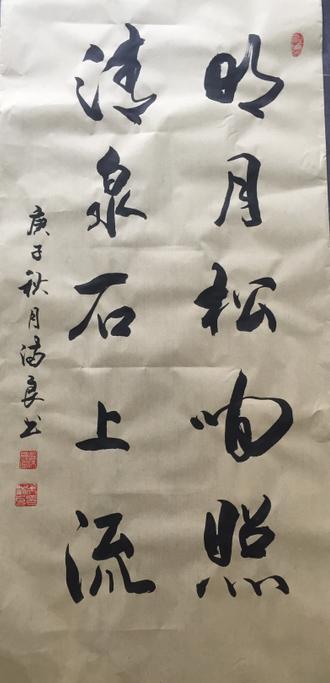 明月松间照
清泉石上流
庚子秋月 良书